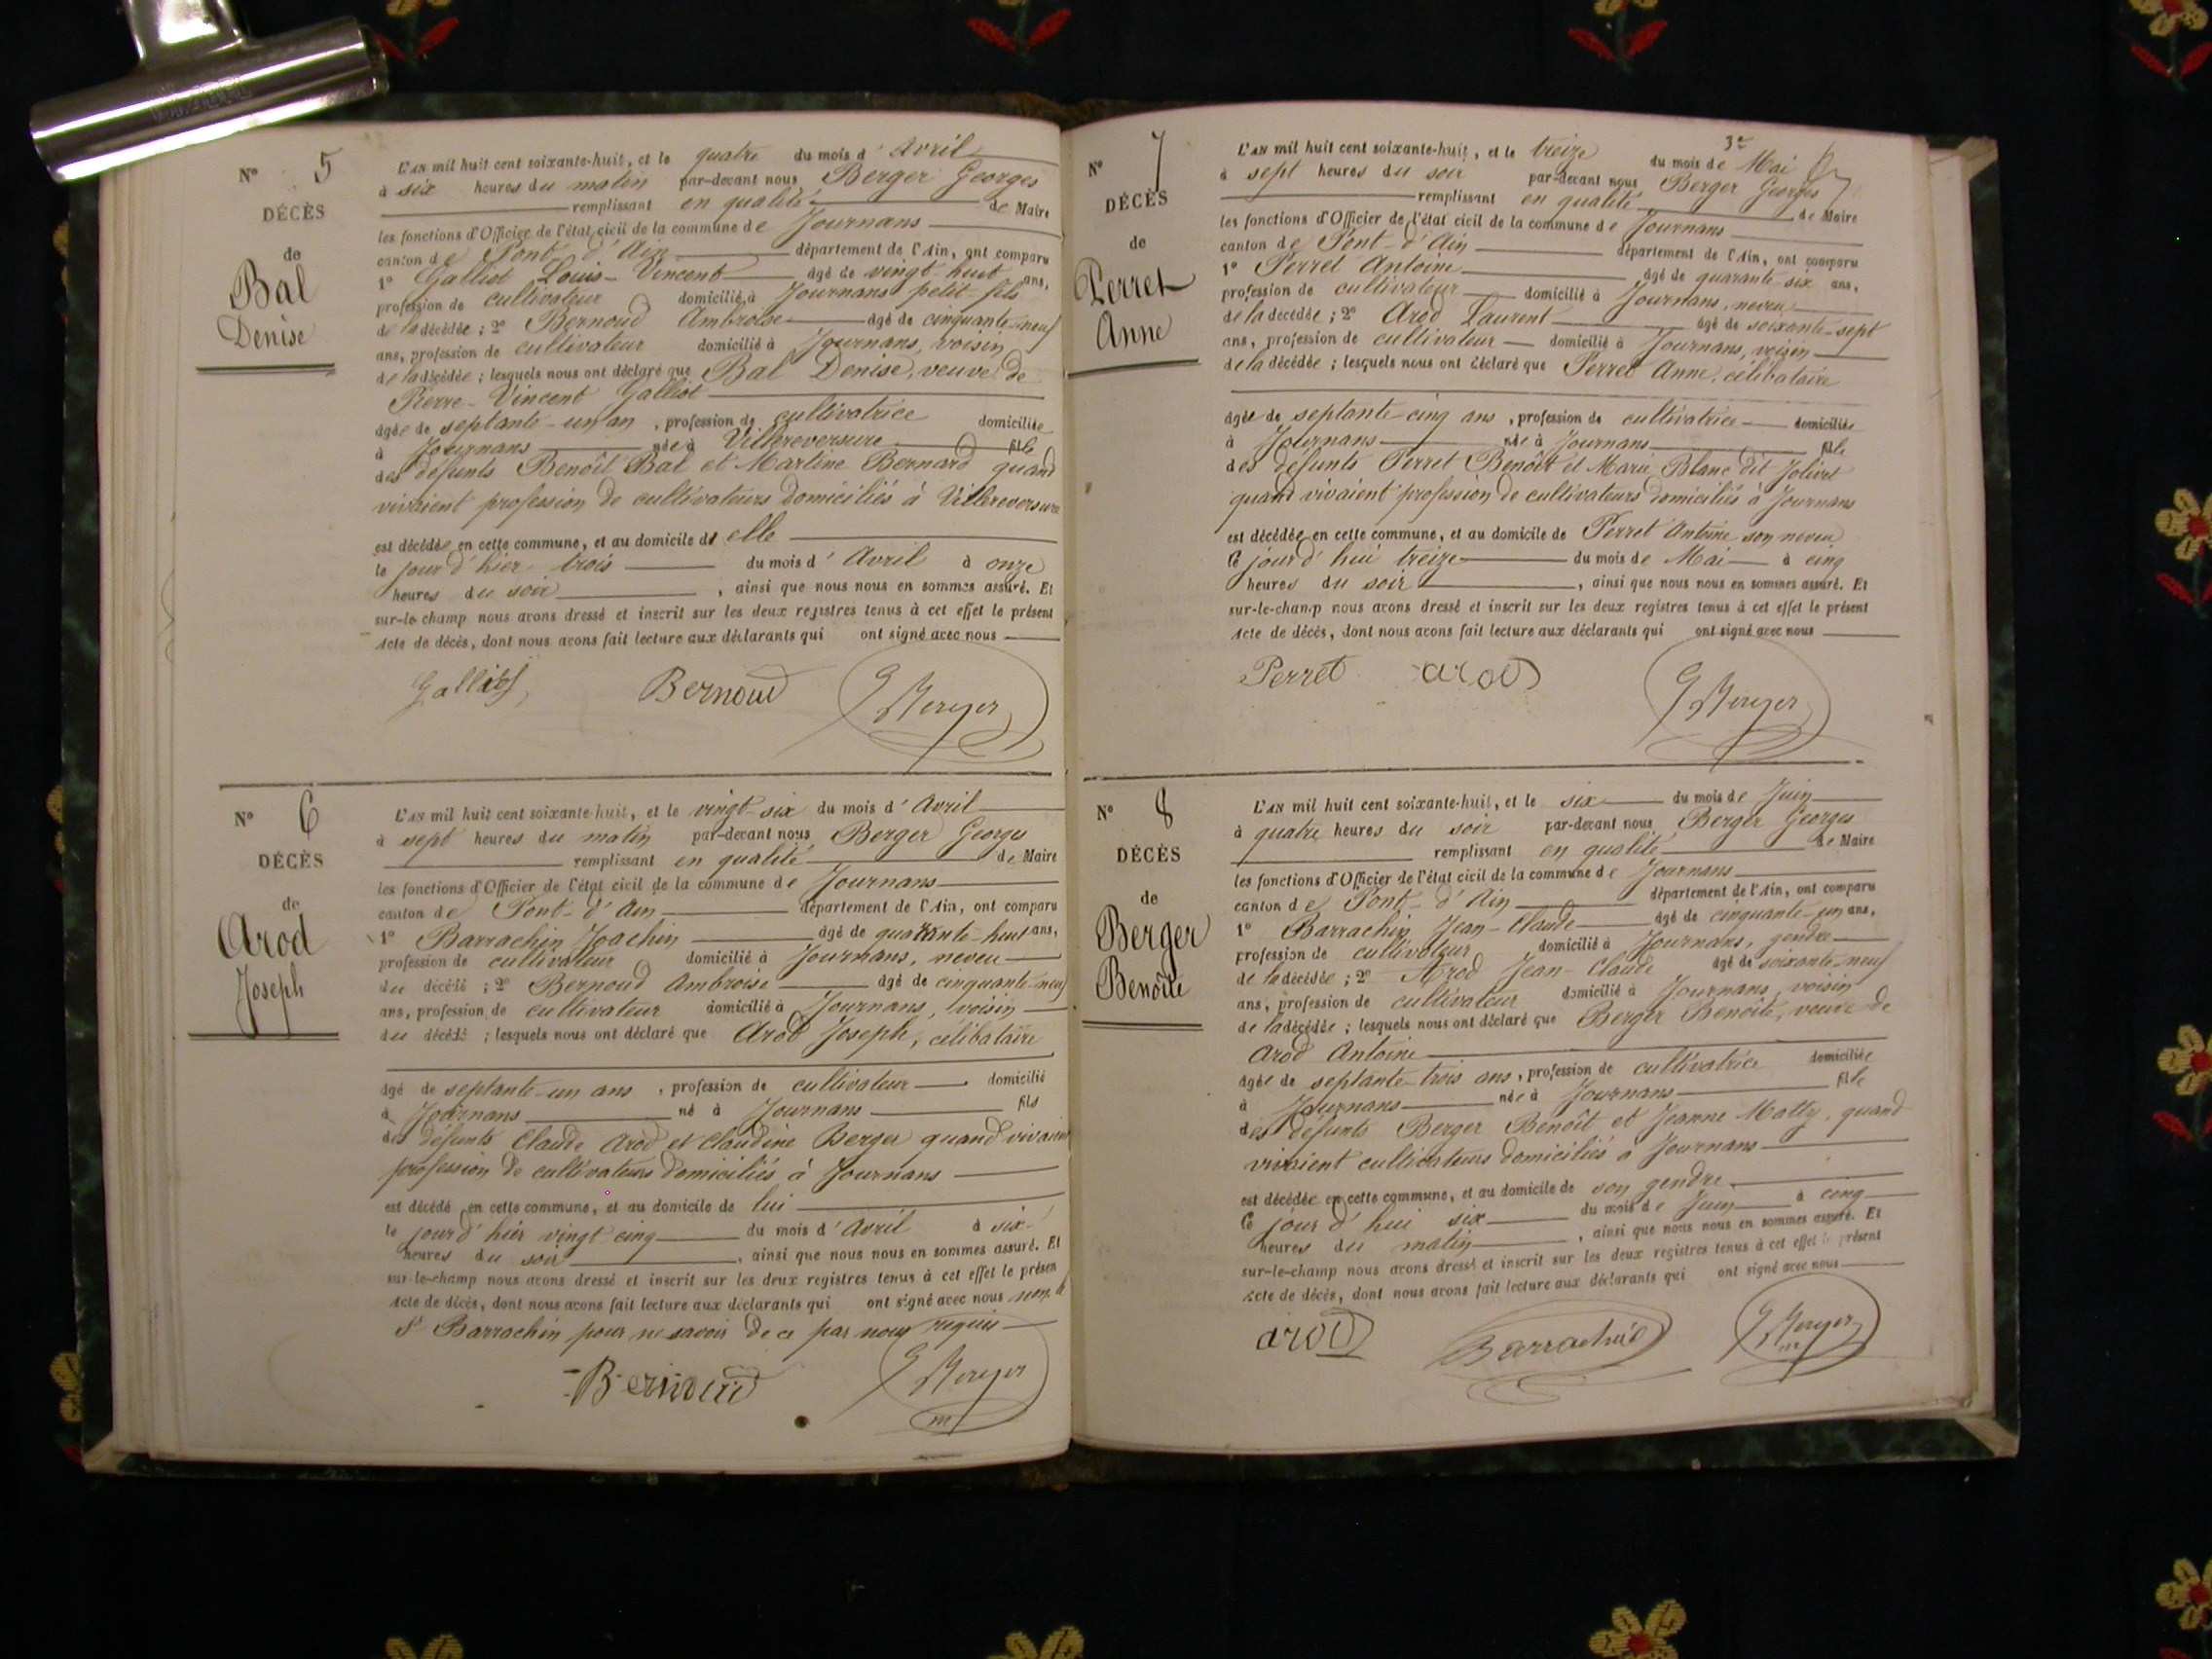 N° 5
DÉCÈS
de
Bal
Denise
L'AN mil huit cent soixante-huit, et le quatre du mois d' Avril
à six heures du matin par-devant nous Berger Georges
remplissant en qualité de Maire
les fonctions d'Officier de l'état civil de la commune de Journans
canton de Pont-d'Ain département de l'Ain, ont comparu
1° Galliot Louis-Vincent âgé de vingt-huit ans,
profession de cultivateur domicilié à Journans petit-fils
de la décédée ; 2° Bernoud Ambroise âgé de cinquante-neuf
ans, profession de cultivateur domicilié à Journans, voisin
de la décédée ; lesquels nous ont déclaré que Bal Denise, veuve de
Pierre-Vincent Galliot
âgée de septante-un an, profession de cultivatrice domiciliée
à Journans née à Villereversure fille
des défunts Benoît Bal et Martine Bernard quand
vivaient profession de cultivateurs domiciliés à Villereversure
est décédée en cette commune, et au domicile de elle
le jour d'hier trois du mois d' Avril à onze
heures du soir, ainsi que nous nous en sommes assuré. Et
sur-le-champ nous avons dressé et inscrit sur les deux registres tenus à cet effet le présent
Acte de décès, dont nous avons fait lecture aux déclarants qui ont signé avec nous
Galliot Bernoud G Berger
N° 6
DÉCÈS
de
Arod
Joseph
L'AN mil huit cent soixante-huit, et le vingt-six du mois d' Avril
à sept heures du matin par-devant nous Berger Georges
remplissant en qualité de Maire
les fonctions d'Officier de l'état civil de la commune de Journans
canton de Pont-d'Ain département de l'Ain, ont comparu
1° Barrachin Joachin âgé de quarante-huit ans,
profession de cultivateur domicilié à Journans, neveu
du décédé ; 2° Bernoud Ambroise âgé de cinquante-neuf
ans, profession de cultivateur domicilié à Journans, voisin
du décédé ; lesquels nous ont déclaré que Arod Joseph, célibataire
âgé de septante-un ans, profession de cultivateur domicilié
à Journans né à Journans fils
des défunts Claude Arod et Claudine Berger quand vivaient
profession de cultivateurs domiciliés à Journans
est décédé en cette commune, et au domicile de lui
le jour d'hier vingt cinq du mois d' Avril à six
heures du soir, ainsi que nous nous en sommes assuré. Et
sur-le-champ nous avons dressé et inscrit sur les deux registres tenus à cet effet le présen
Acte de décès, dont nous avons fait lecture aux déclarants qui ont signé avec nous non le
Sr Barrachin pour ne savoir de ce par nous requis
Bernoud G Berger
m
3e
N° 7
DÉCÈS
de
Perret
Anne
L'AN mil huit cent soixante-huit, et le treize du mois de Mai
à sept heures du soir par-devant nous Berger Georges
remplissant en qualité de Maire
les fonctions d'Officier de l'état civil de la commune de Journans
canton de Pont-d'Ain département de l'Ain, ont comparu
1° Perret Antoine âgé de quarante-six ans,
profession de cultivateur domicilié à Journans, neveu
de la décédée ; 2° Arod Laurent âgé de soixante-sept
ans, profession de cultivateur domicilié à Journans, voisin
de la décédée ; lesquels nous ont déclaré que Perret Anne, célibataire
âgée de septante-cinq ans, profession de cultivatrice domiciliée
à Journans née à Journans fille
des défunts Perret Benoît et Marie Blanc dit Jolivet
quand vivaient profession de cultivateurs domiciliés à Journans
est décédée en cette commune, et au domicile de Perret Antoine son neveu
ce jour d'hui treize du mois de Mai à cinq
heures du soir, ainsi que nous nous en sommes assuré. Et
sur-le-champ nous avons dressé et inscrit sur les deux registres tenus à cet effet le présent
Acte de décès, dont nous avons fait lecture aux déclarants qui ont signé avec nous
Perret arod G Berger
N° 8
DÉCÈS
de
Berger
Benoîte
L'AN mil huit cent soixante-huit, et le six du mois de Juin
à quatre heures du soir par-devant nous Berger Georges
remplissant en qualité de Maire
les fonctions d'Officier de l'état civil de la commune de Journans
canton de Pont-d'Ain département de l'Ain, ont comparu
1° Barrachin Jean-Claude âgé de cinquante-un ans,
profession de cultivateur domicilié à Journans, gendre
de la décédée ; 2° Arod Jean-Claude âgé de soixante-neuf
ans, profession de cultivateur domicilié à Journans, voisin
de la décédée ; lesquels nous ont déclaré que Berger Benoîte, veuve de
Arod Antoine
âgée de septante-trois ans, profession de cultivatrice domiciliée
à Journans née à Journans fille
des défunts Berger Benoît et Jeanne Matty, quand
vivaient cultivateurs domiciliés à Journans
est décédée en cette commune, et au domicile de son gendre
ce jour d'hui six du mois de Juin à cinq
heures du matin, ainsi que nous nous en sommes assuré. Et
sur-le-champ nous avons dressé et inscrit sur les deux registres tenus à cet effet le présent
Acte de décès, dont nous avons fait lecture aux déclarants qui ont signé avec nous
arod Barrachin G Berger
m